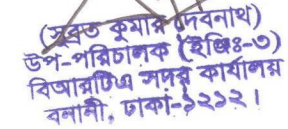 (সুব্রত কুমার দেবনাথ)
উপ-পরিচালক (ইঞ্জিঃ-৩)
বিআরটিএ সদর কার্যালয়
বনানী, ঢাকা-১২১২।